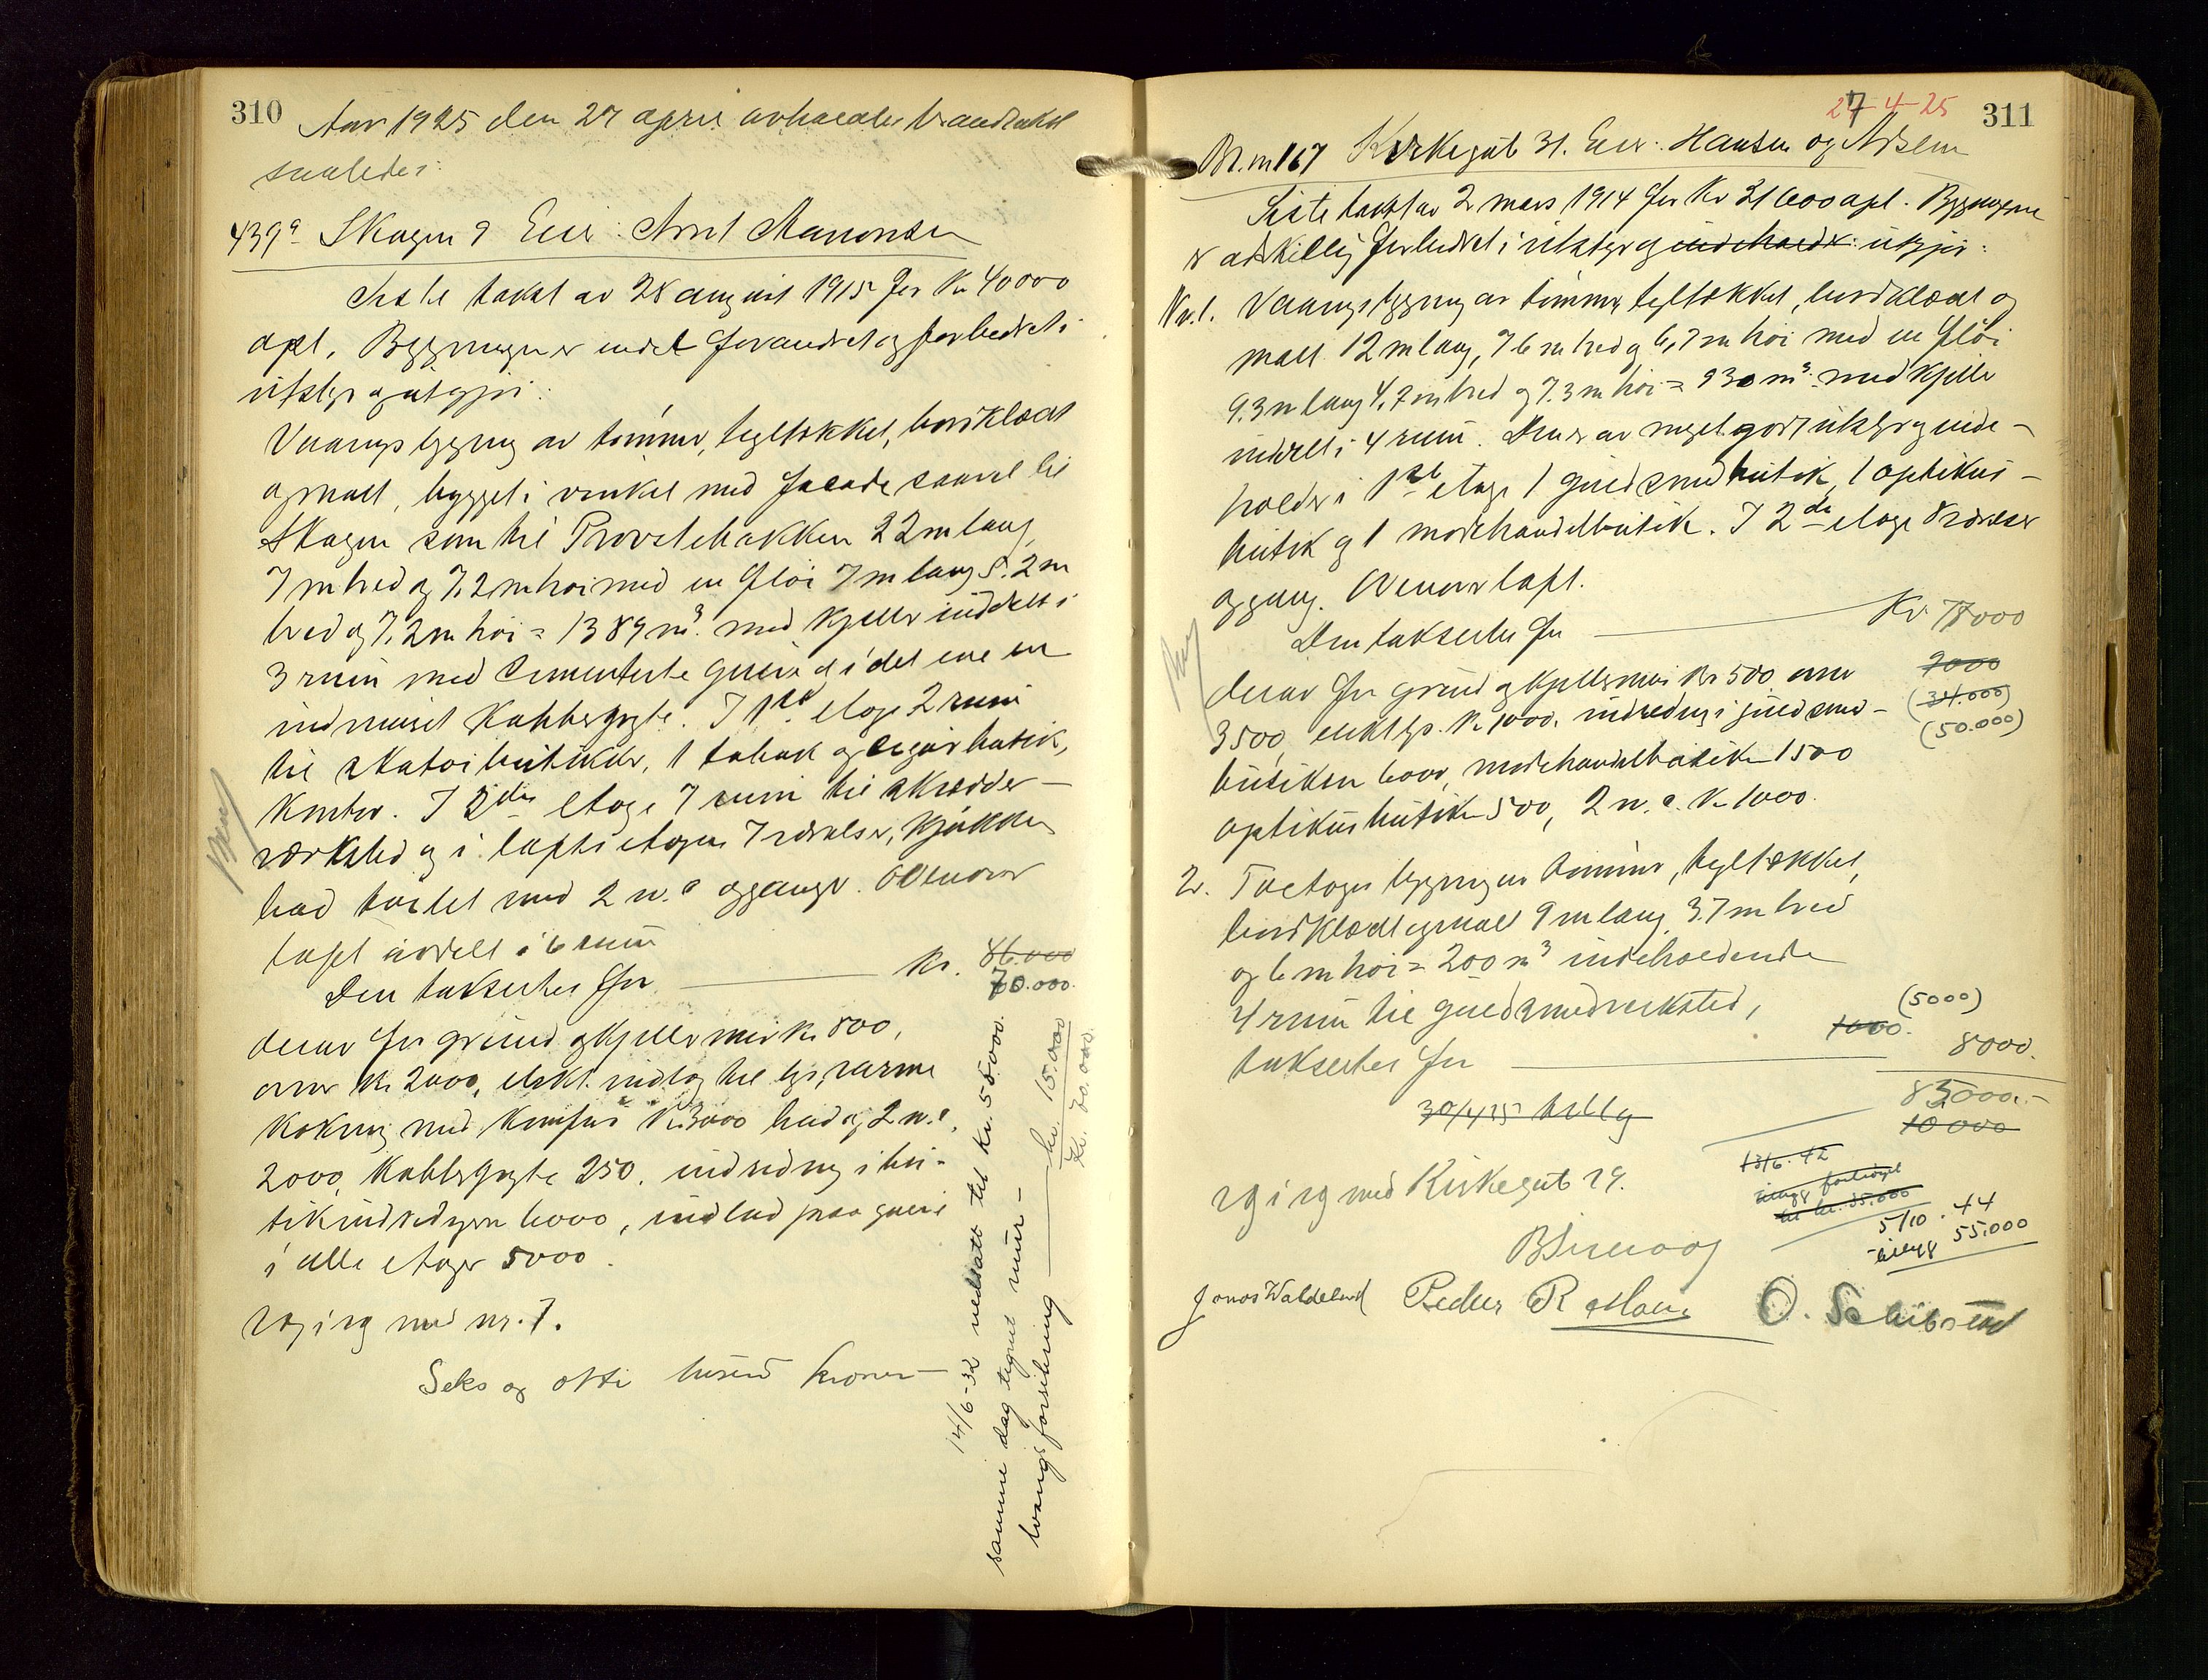 310
Aar 1925 den 27 april avholdtes brandtakst
saaledes:
439a Skagen 9 Eier: Arnt Amundsen
Siste takst av 28 august 1915 for Kr 40000
apl. Bygningen er endel forandret og forbedret i
utstyr og utgjør:
Vaaningsbygning av tømmer, tegltækket, bordklædt
og malt, bygget i vinkel med facade saavel til
Skagen som til Provstebakken 22 m lang,
7 m bred og 7,2 m høi med en fløi 7 m lang 5.2 m
bred og 7,2 m høi = 1389 m³ med kjelder inddelt i
3 rum med cementerte gulv og i det ene en
indmuret kobbergryte. I 1ste etage 2 rum
til skotøibutikker, 1 tobak og cigarbutik,
kontor. I 2den etage 7 rum til skrædder-
verksted og i loftsetagen 7 værelser, kjøkken
bad toilet med 2 n.a opgange. Ovenover
loft avdelt i 6 rum
Den takseres for Kr. 86.000
70.000.
derav for grund og kjeldermur kr 800,
ovner kr. 2000, elekt. indlag til lys, varme
kokning med komfur Kr. 3000 bad og 2 n.a.
2000, kobbergryte 250. indredning i bu-
tikindredningen 6000, indlud paa gulve
i alle etager 5000.
Vg i vg med nr. 7.
Seks og otti tusind kroner
14/6-32 nedsatt til kr. 55.000.
samme dag tegnet murtvangsforsikring kr. 15.000
Kr. 70.000.
27-4-25 311
Br. nr 167 Kirkegat 31. Eier: Hansen og Nilsen
Siste takst av 2 mars 1914 for Kr 31600 apl. Bygningene
er adskillig forbedret i utstyr og indeholder: utgjør:
Nr. 1. Vaaningsbygning av tømmer, tegltækket, bordklædt og
malt 12 m lang, 7 6 m bred og 6,7 m høi med en fløi
9.3 m lang 4,7 m bred og 7.3 m høi = 930 m³ med kjelder
inddelt i 4 rum. Den er av meget godt utstyr og inde-
holder i 1ste etage 1 guldsmedbutik, 1 optikus-
butik og 1 motehandelbutik. I 2den etage 8 værelser
og gang. Ovenover loft.
Den takseres for Kr. 78000
7000
(34.000)
(50.000)
derav for grund og kjeldermur kr 500 ovner
3500, elektlys. kr 1000. indredning i guldsmed-
butiken 6000, motehandelbutiken 1500
optikusbutiken 500, 2 n.a. kr 1000.
2. Toetages bygning av tømmer, tegltækket,
bordklædt og malt 9 m lang, 3.7 m bred
og 6 m høi = 200 m³ indeholdende
4 rum til guldsmedverksted, (5000)
takseres for 1000. 8000.
85,000.-
30/4 25 tillæg 10 000
13/6. 42
tillegg forhøiet
til kr. 35.000
5/10. 44
tillegg 55.000
Vg i vg med Kirkegat 29.
Jonas Waldeland Peder R. O. Schibsted